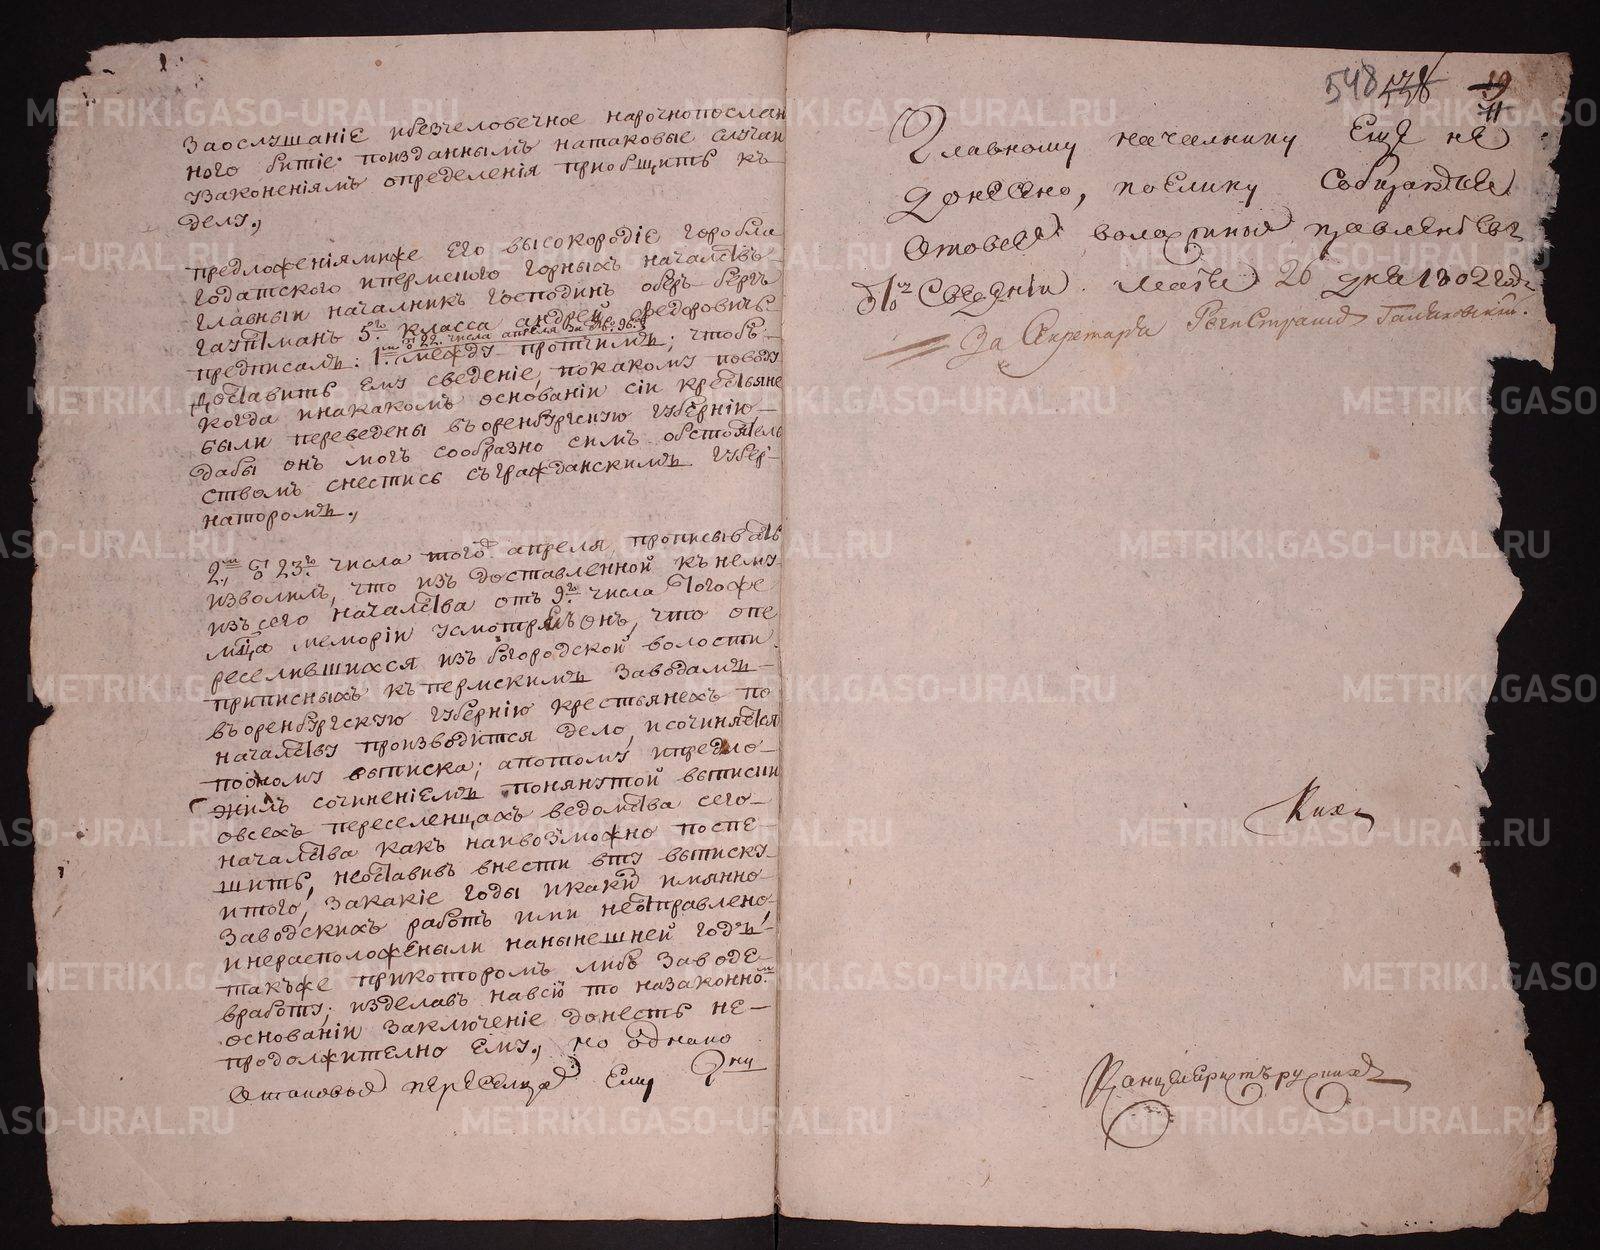 заослушаніе ибезчеловечное нарочнопослан
ного битіе поизданнымъ натаковые случаи
узаконеніямъ определенія приобщить къ
делу.,
предложеніямиже его высокородіе
годатского ипермского горныхъ начальствъ
главный началникъ господинъ оберъ бергъ
гауптманъ 5го класса андрей федоровичь
отъ 22 числа апреля за № 963
предписалъ: 1е между протчимъ; чтобъ
доставить ему сведеніе, покакому поводу
когда инакакомъ основаніи сіи крестьяне
были переведены въоренбургскую губернію
дабы онъ могъ сообразно симъ обстоятель
ствомъ снестись съгражданскимъ губер-
наторомъ.,
2е, отъ 23го числа того апреля, прописывать
изволилъ, что изъ доставленной къ нему
изъ сего началства отъ 9го числа тогоже
мца меморіи усмотрелъ онъ, что опе
реселившихся изъ богородской волости
приписныхъ къ пермскимъ заводамъ
въоренбургскую губернію крестьянехъ по
началству производится дело, исочиняется
поономъ выписка; апотому ипредло
жилъ сочиненіемъ помянутой выписки
овсехъ переселенцахъ ведомства сего
началства какъ наивозможно поспе-
шить, неоставивъ внести вту выписку
итого, закакіе годы икакій имянно
заводскихъ работъ ими неотправлено,
инерасположеныли нанынешней годъ
такъже прикоторомъ либъ заводе
вработу; изделавъ навсіо то назаконномъ
основаніи заключеніе донесть не-
продолжително ему., но однако
Отаковыя переселцахъ ему
548 538 19
11
Главному началнику Еще не
донесено, поелику Собираются
Отовсея волостныя правленіевъ
Сведніи. маія 26 дня 1802 года
За Секретаря Регистраторъ
Канцеляристъ